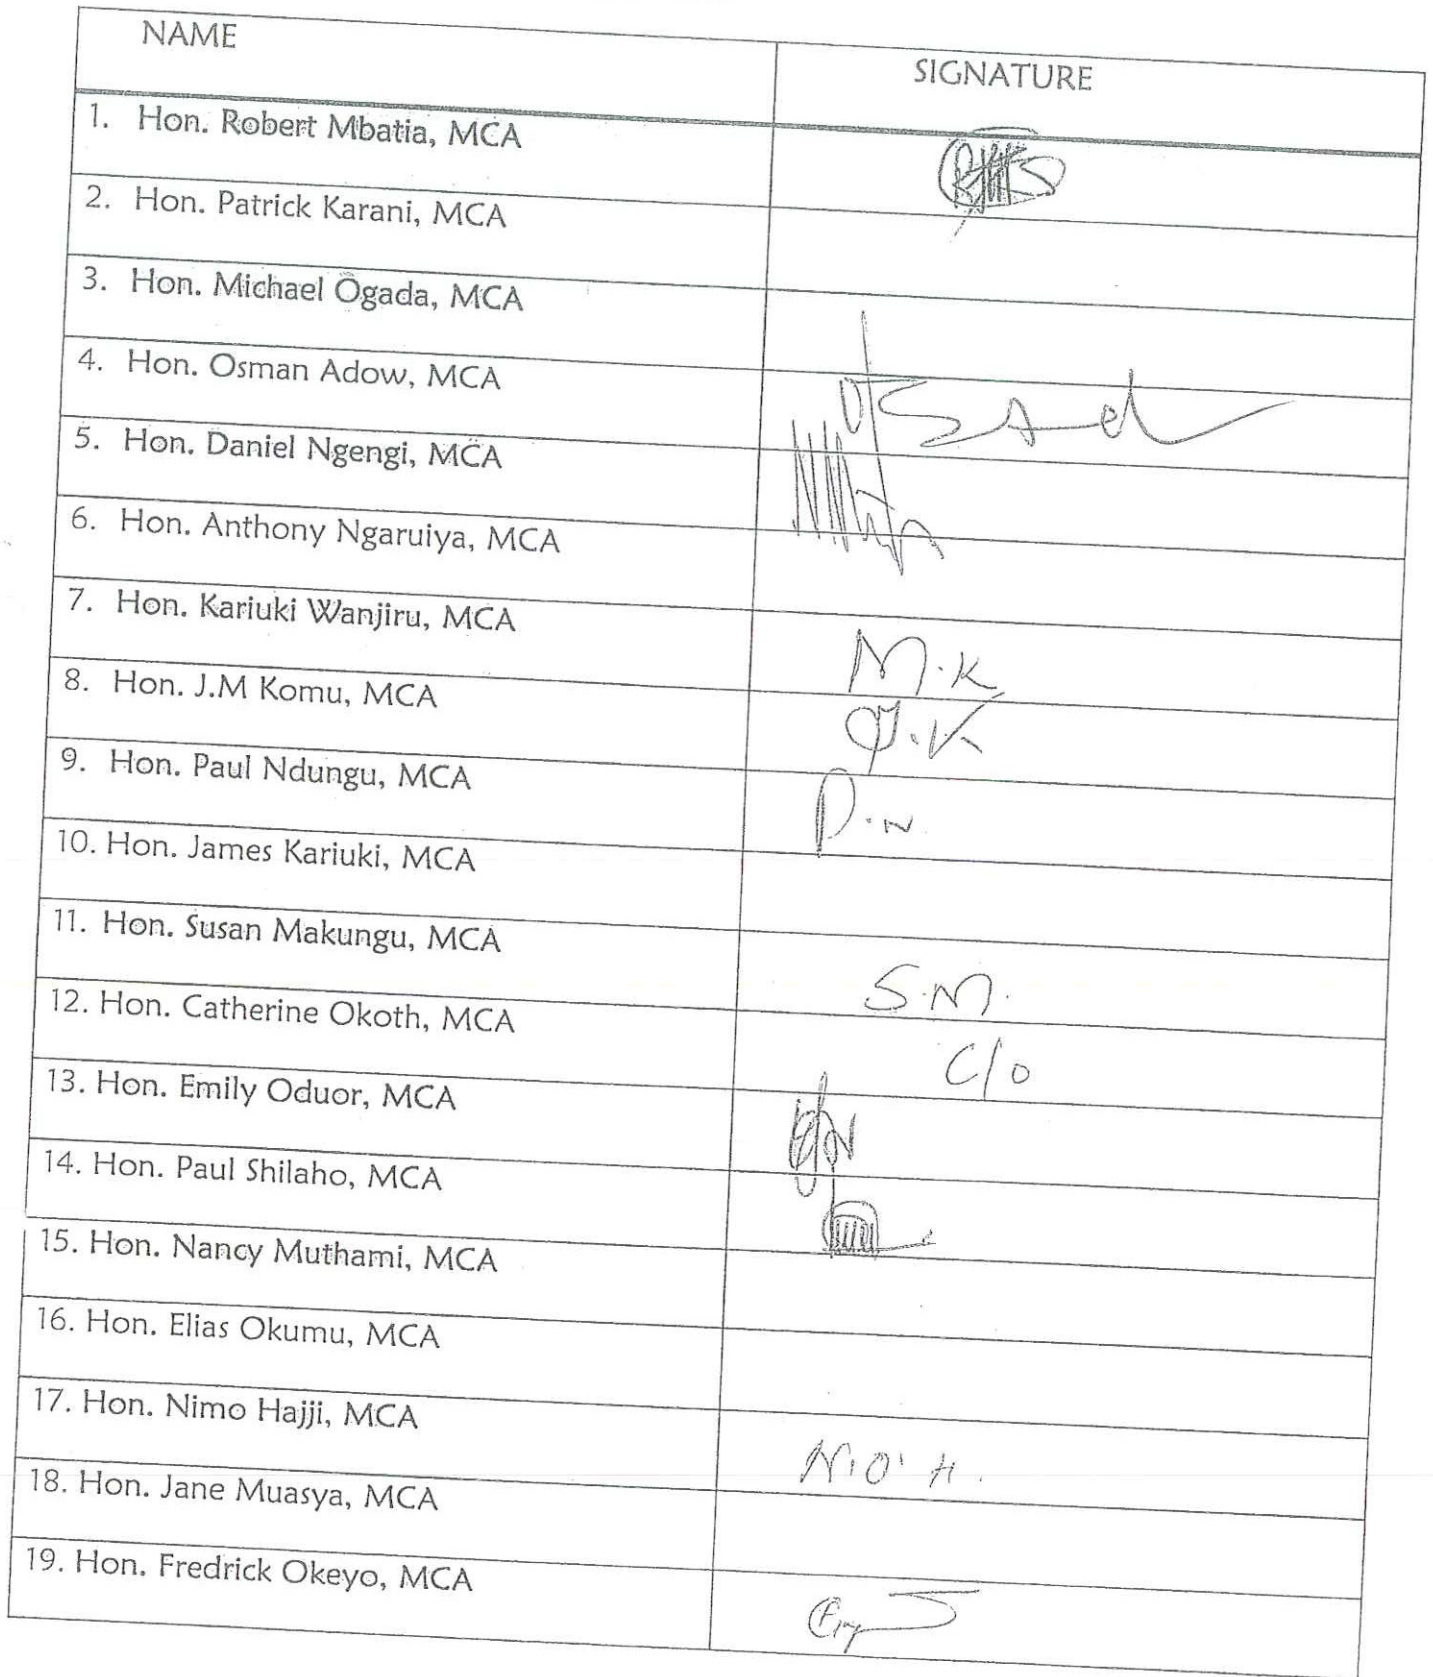 NAME
SIGNATURE
1. Hon. Robert Mbatia, MCA
2. Hon. Patrick Karani, MCA
3. Hon. Michael Ogada, MCA
4. Hon. Osman Adow, MCA
5. Hon. Daniel Ngengi, MCA
6. Hon. Anthony Ngaruiya, MCA
7. Hon. Kariuki Wanjiru, MCA
M.K
8. Hon. J.M Komu, MCA
J.K
9. Hon. Paul Ndungu, MCA
P.N
10. Hon. James Kariuki, MCA
11. Hon. Susan Makungu, MCA
S.M.
12. Hon. Catherine Okoth, MCA
C/O
13. Hon. Emily Oduor, MCA
14. Hon. Paul Shilaho, MCA
15. Hon. Nancy Muthami, MCA
16. Hon. Elias Okumu, MCA
17. Hon. Nimo Hajji, MCA
N.O.H.
18. Hon. Jane Muasya, MCA
19. Hon. Fredrick Okeyo, MCA